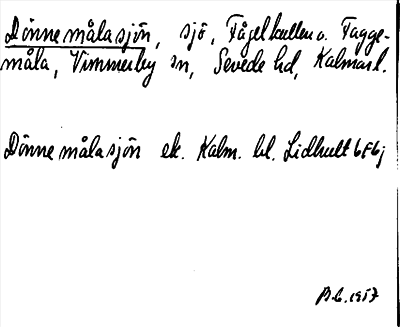 Dönnemålasjön, sjö, Fågelkullen o. Tagge-
måla, Vimmerby sn, Sevede hd, Kalmar l.
Dönnemålasjön ek. Kalm. bl. Lidhult 6F6j
1957